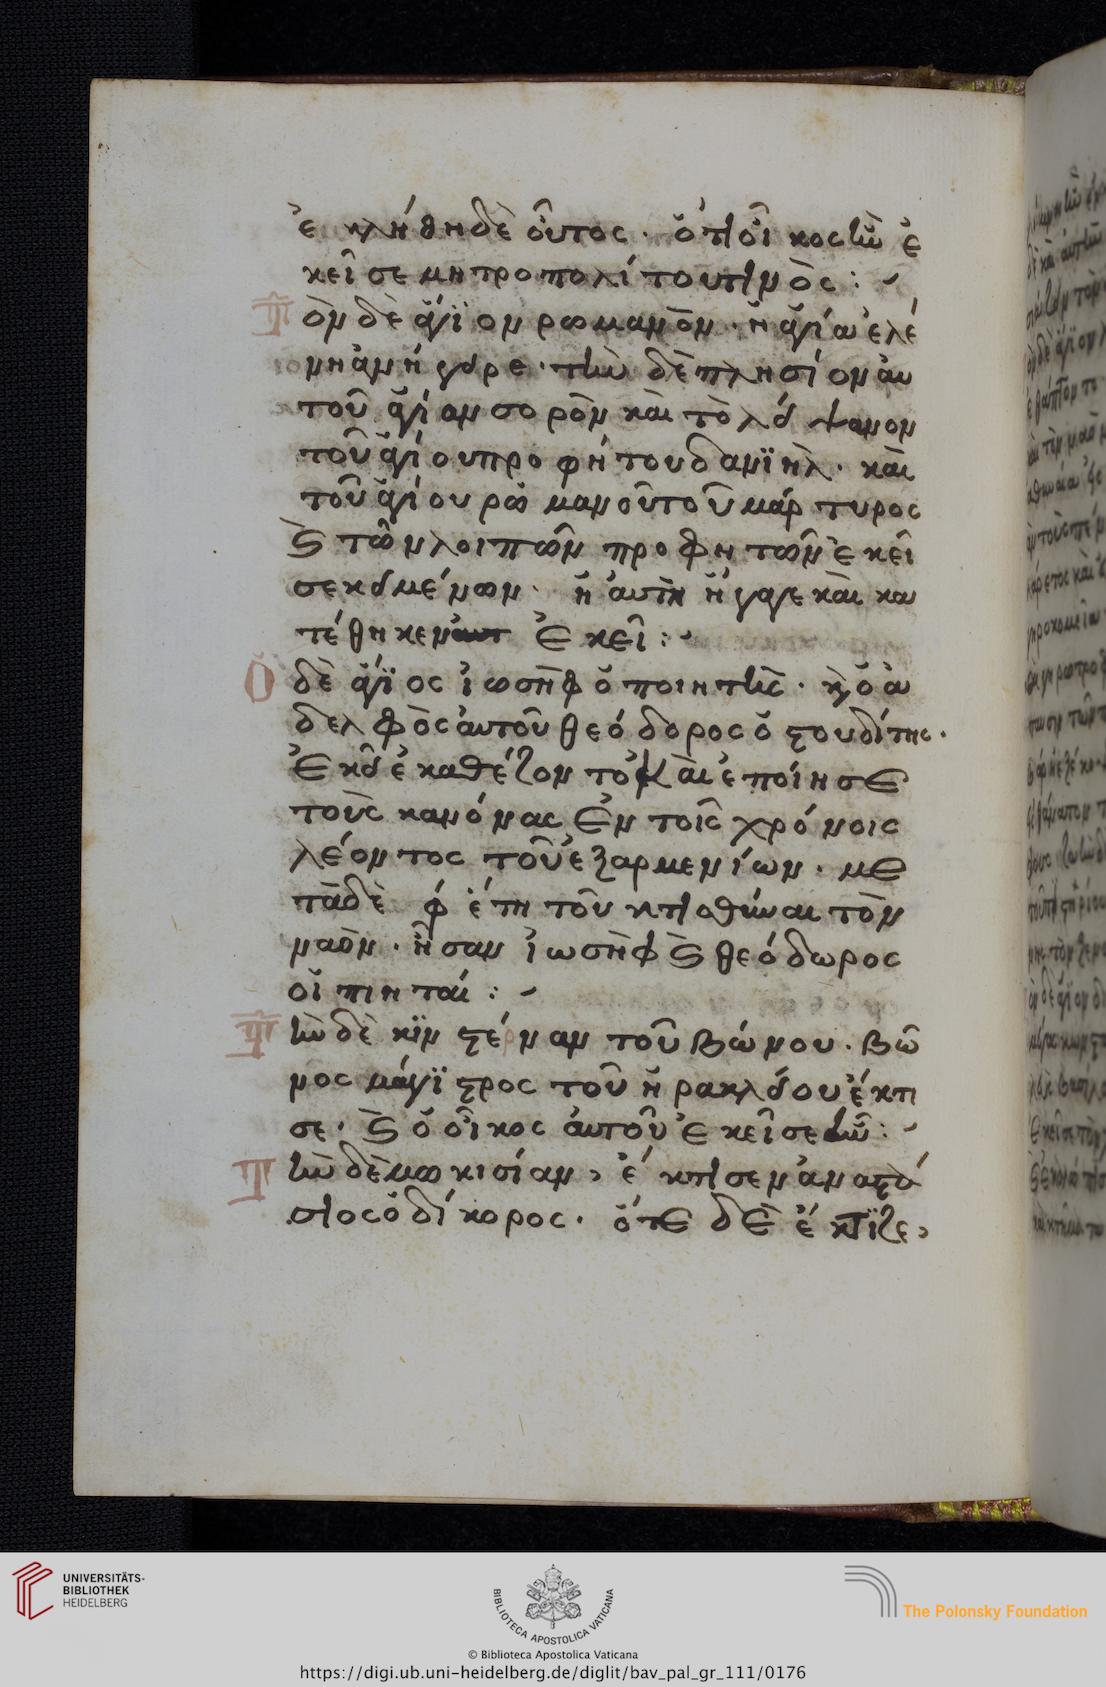 ἐκλήθη δὲ οὗτος · ὅτι οἶκος ἦν ἐ
κεῖσε μητροπολίτου τινὸς :
Τὸν δὲ ἅγϊον ρωμανὸν · ἡ ἁγία ἑλέ
νη ἀνήγειρε · τὴν δὲ πλησίον αὐ
τοῦ ἁγίαν σορὸν καὶ τὸ λείψανον
τοῦ ἁγίου προφήτου δανϊὴλ · καὶ
τοῦ ἁγίου ρωμανοῦ τοῦ μάρτυρος
καὶ τῶν λοιπῶν προφητῶν ἐκεῖ
σε κειμένων · ἡ αὐτὴ ἤγαγε καὶ κα
τέθηκεν ἐκεῖ :
Ὁ δὲ ἅγϊος ἰωσὴφ ὁ ποιητὴς · καὶ ὁ ἀ
δελφὸς αὐτοῦ θεόδορος ὁ στουδίτης ·
ἐκεῖ ἐκαθέζοντο καὶ ἐποίησε
τοὺς κανόνας ἐν τοῖς χρόνοις
λέοντος τοῦ ἐξ αρμενίων · με
τὰ δὲ φ ἔτη τοῦ κτισθῆναι τὸν
ναὸν · ἦσαν ἰωσὴφ καὶ θεόδωρος
οἱ πιηταί :
Τὴν δὲ κϊνστέρναν τοῦ βώνου · βῶ
νος μάγϊστρος τοῦ ἡρακλείου ἔκτι
σε · καὶ ὁ οἶκος αὐτοῦ ἐκεῖσε ἦν :
Τὴν δὲ μωκισίαν, ἔκτισεν ἀναστά
σιος ὁ δίκορος · ὅτε δὲ ἔκτϊζε,
UNIVERSITÄTS-
BIBLIOTHEK
HEIDELBERG
BIBLIOTECA APOSTOLICA VATICANA
The Polonsky Foundation
© Biblioteca Apostolica Vaticana
https://digi.ub.uni-heidelberg.de/diglit/bav_pal_gr_111/0176